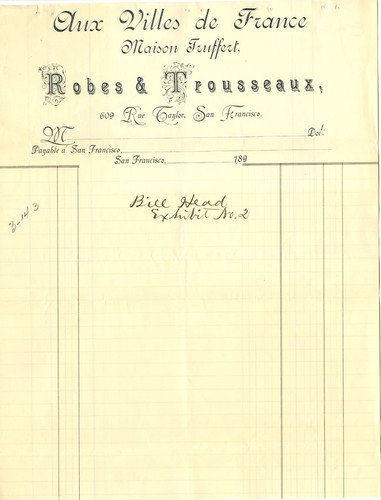 Aux Villes de France
Maison Truffert,
Robes & Trousseaux,
609 Rue Taylor, San Francisco.
M Doit
Payable a San Francisco,
San Francisco, 189
Bill Head
Exhibit No. 2